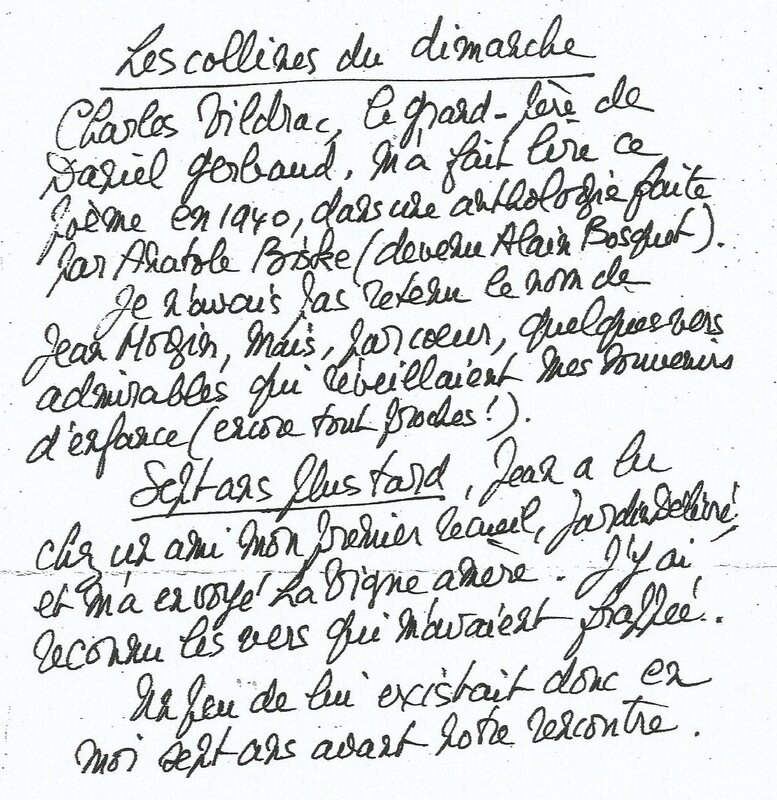 Les collines du dimanche
Charles Vildrac, le grand-père de
Daniel Gerbaud, m'a fait lire ce
poème en 1940, dans une anthologie faite
par Anatole Biske (devenu Alain Bosquet).
Je n'avais pas retenu le nom de
Jean Mogin, mais, par coeur, quelques vers
admirables qui réveillaient mes souvenirs
d'enfance (encore tout proches !).
Sept ans plus tard, Jean a lu
chez un ami mon premier recueil, Jardin Délivré,
et m'a envoyé La Vigne amère. J'y ai
reconnu les vers qui m'avaient frappée.
Un peu de lui existait donc en
moi sept ans avant notre rencontre.